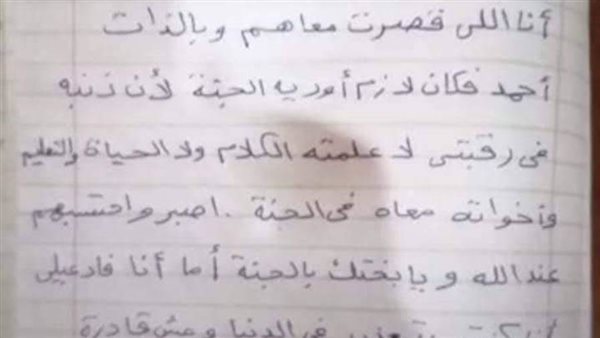 أنا اللى قصرت معاهم وبالذات
أحمد فكان لازم أوديه الجنة لأن ذنبه
فى رقبتى لا علمته الكلام ولا الحياة والتعليم
وأخواته معاه فى الجنة . اصبر واحتسبهم
عند الله ويا بختك بالجنة أما أنا فادعيلى
فى الدنيا ومش قادرة